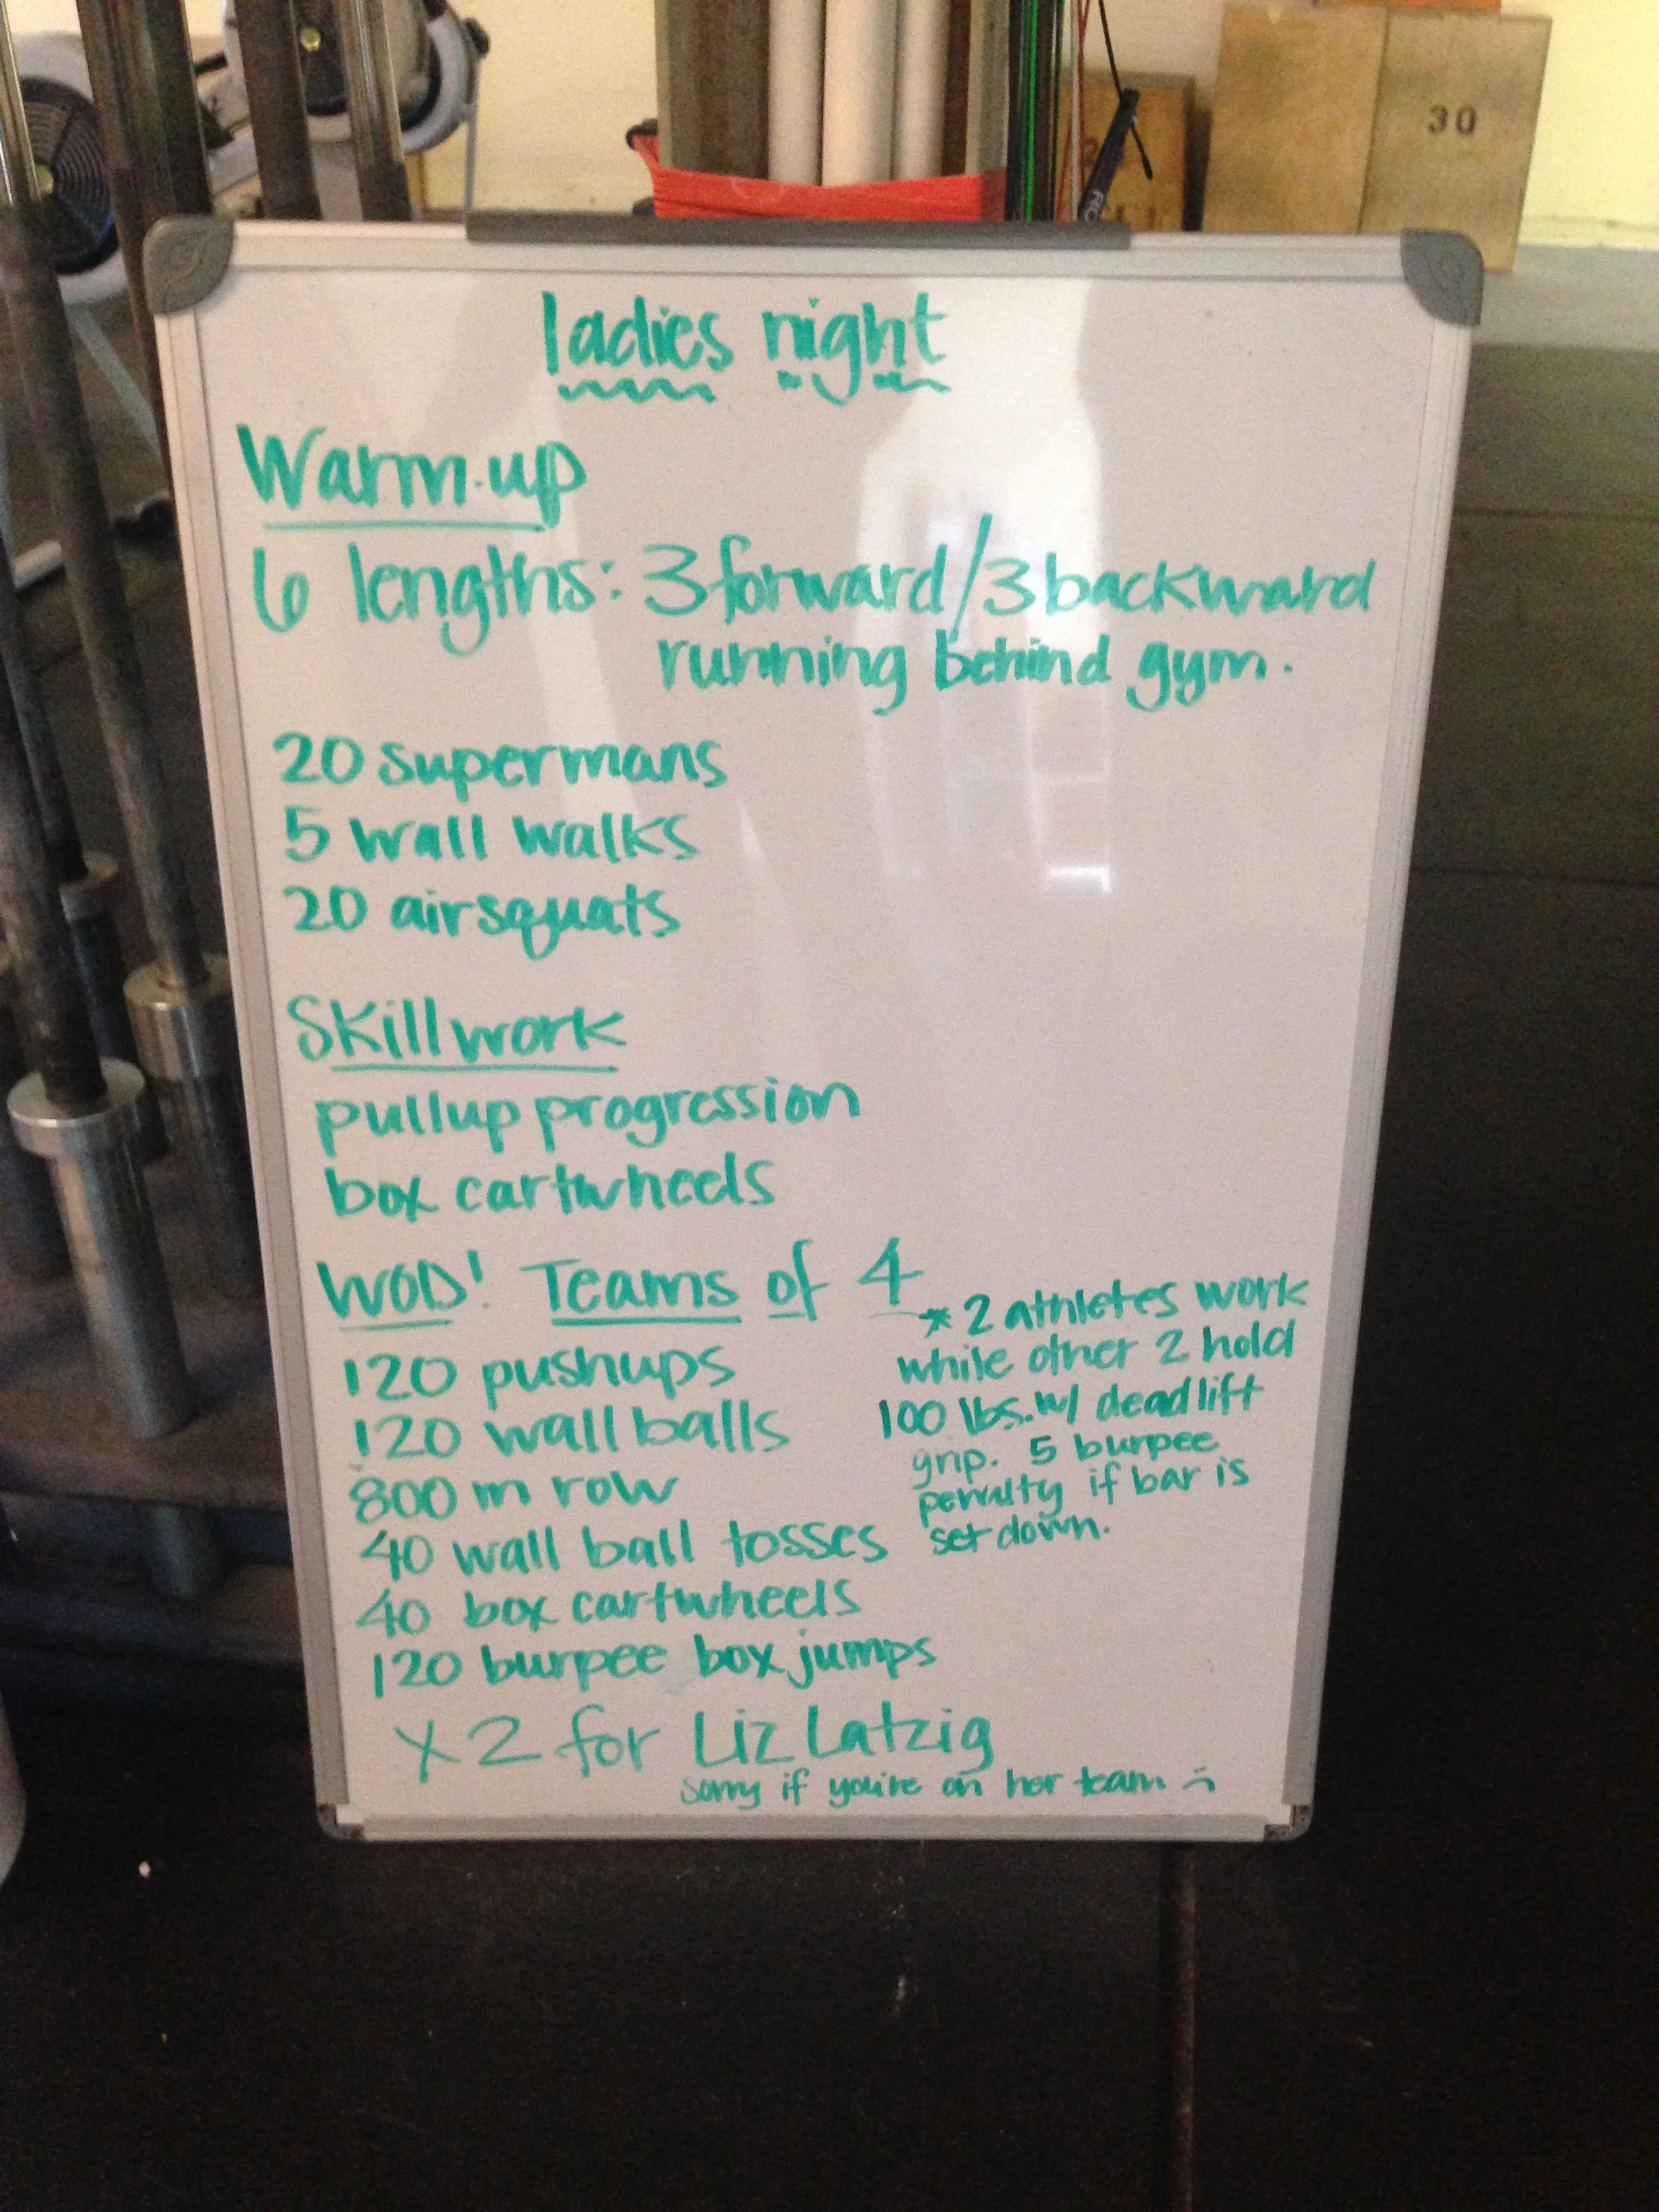 30
ladies night
Warm-up
6 lengths: 3 forward/3 backward
running behind gym.
20 supermans
5 wall walks
20 airsquats
Skillwork
pullup progression
box cartwheels
WOD! Teams of 4
*2 athletes work
while other 2 hold
100 lbs. w/ deadlift
grip. 5 burpee
penalty if bar is
set down.
120 pushups
120 wall balls
800 m row
40 wall ball tosses
40 box cartwheels
120 burpee box jumps
x2 for Liz Latzig
sorry if you're on her team :(